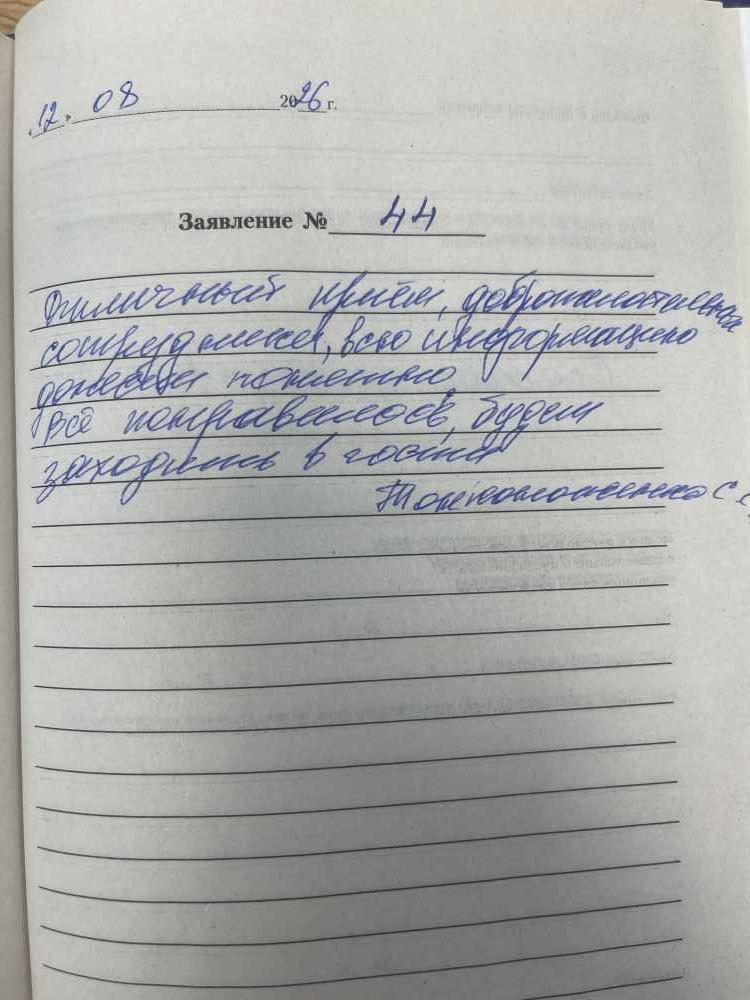 « 12 » 08 2026 г.
Заявление № 44
Отличный приём, доброжелательные
сотрудники, всю информацию
донесли понятно.
Всё понравилось, будем
заходить в гости
С